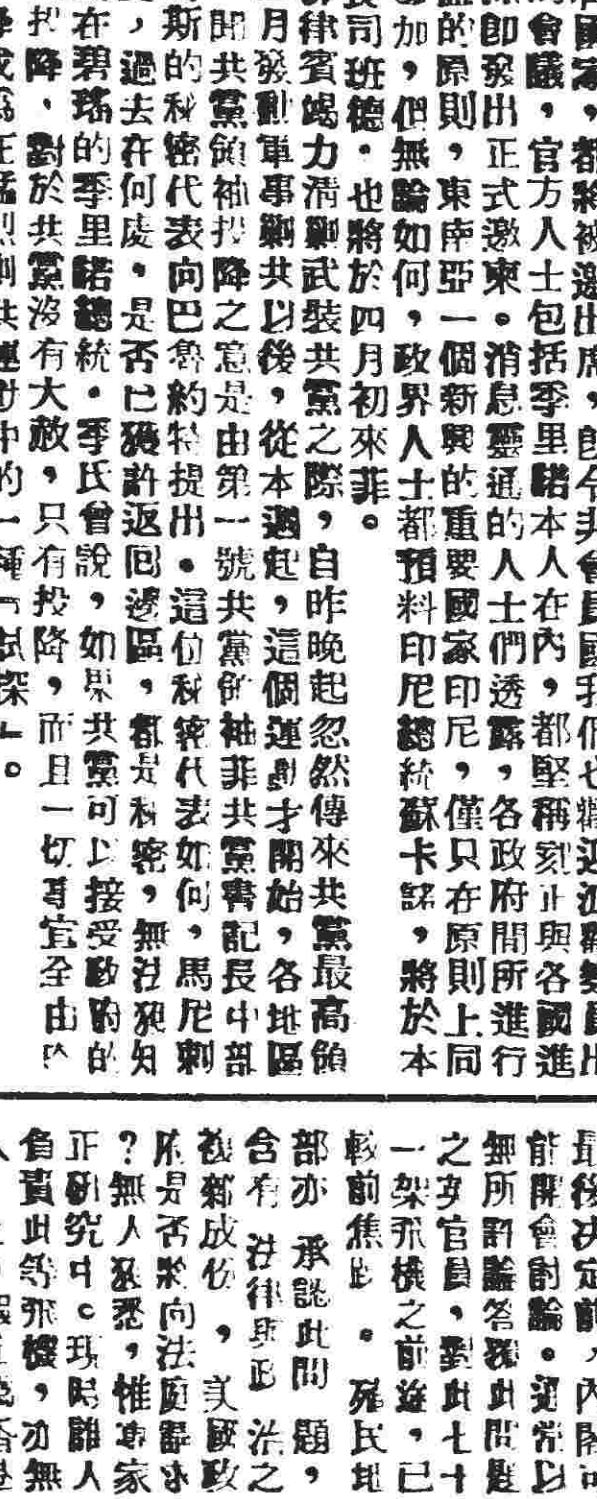 國家，都將被邀出席，即令非會員國
會議，官方人士包括季里諾本人在內，都堅稱刻正與各國進
即發出正式邀柬。消息靈通的人士們透露，各政府間所進行
的原則，東南亞一個新興的重要國家印尼，僅只在原則上同
加，但無論如何，政界人士都預料印尼總統蘇卡諾，將於本
司班德。也將於四月初來菲。
律賓竭力清剿武裝共黨之際，自昨晚起忽然傳來共黨最高領
月發動軍事剿共以後，從本週起，這個運動才開始，各地區
開共黨領袖投降之意是由第一號共黨領袖菲共黨書記長中部
斯的秘密代表向巴魯約特提出。這位秘密代表如何，馬尼剌
，過去在何處，是否已獲許返回邊區，都是秘密，無法獲知
在碧瑤的季里諾總統。季氏曾說，如果共黨可以接受政府的
投降，對於共黨沒有大赦，只有投降，而且一切事宜全由
剿共運動中的一種「試探」。
最後決定前，內閣可
能開會討論。通常以
無所討論答覆此問題
之女官員，對此七十
一架飛機之前途，已
較前焦
。殖民地
部亦承認此問題，
含有法律與政治之
複雜成份，美國政
府是否將向法庭訴
？無人獲悉，惟專家
正研究中。現時誰人
負責此等飛機，亦無